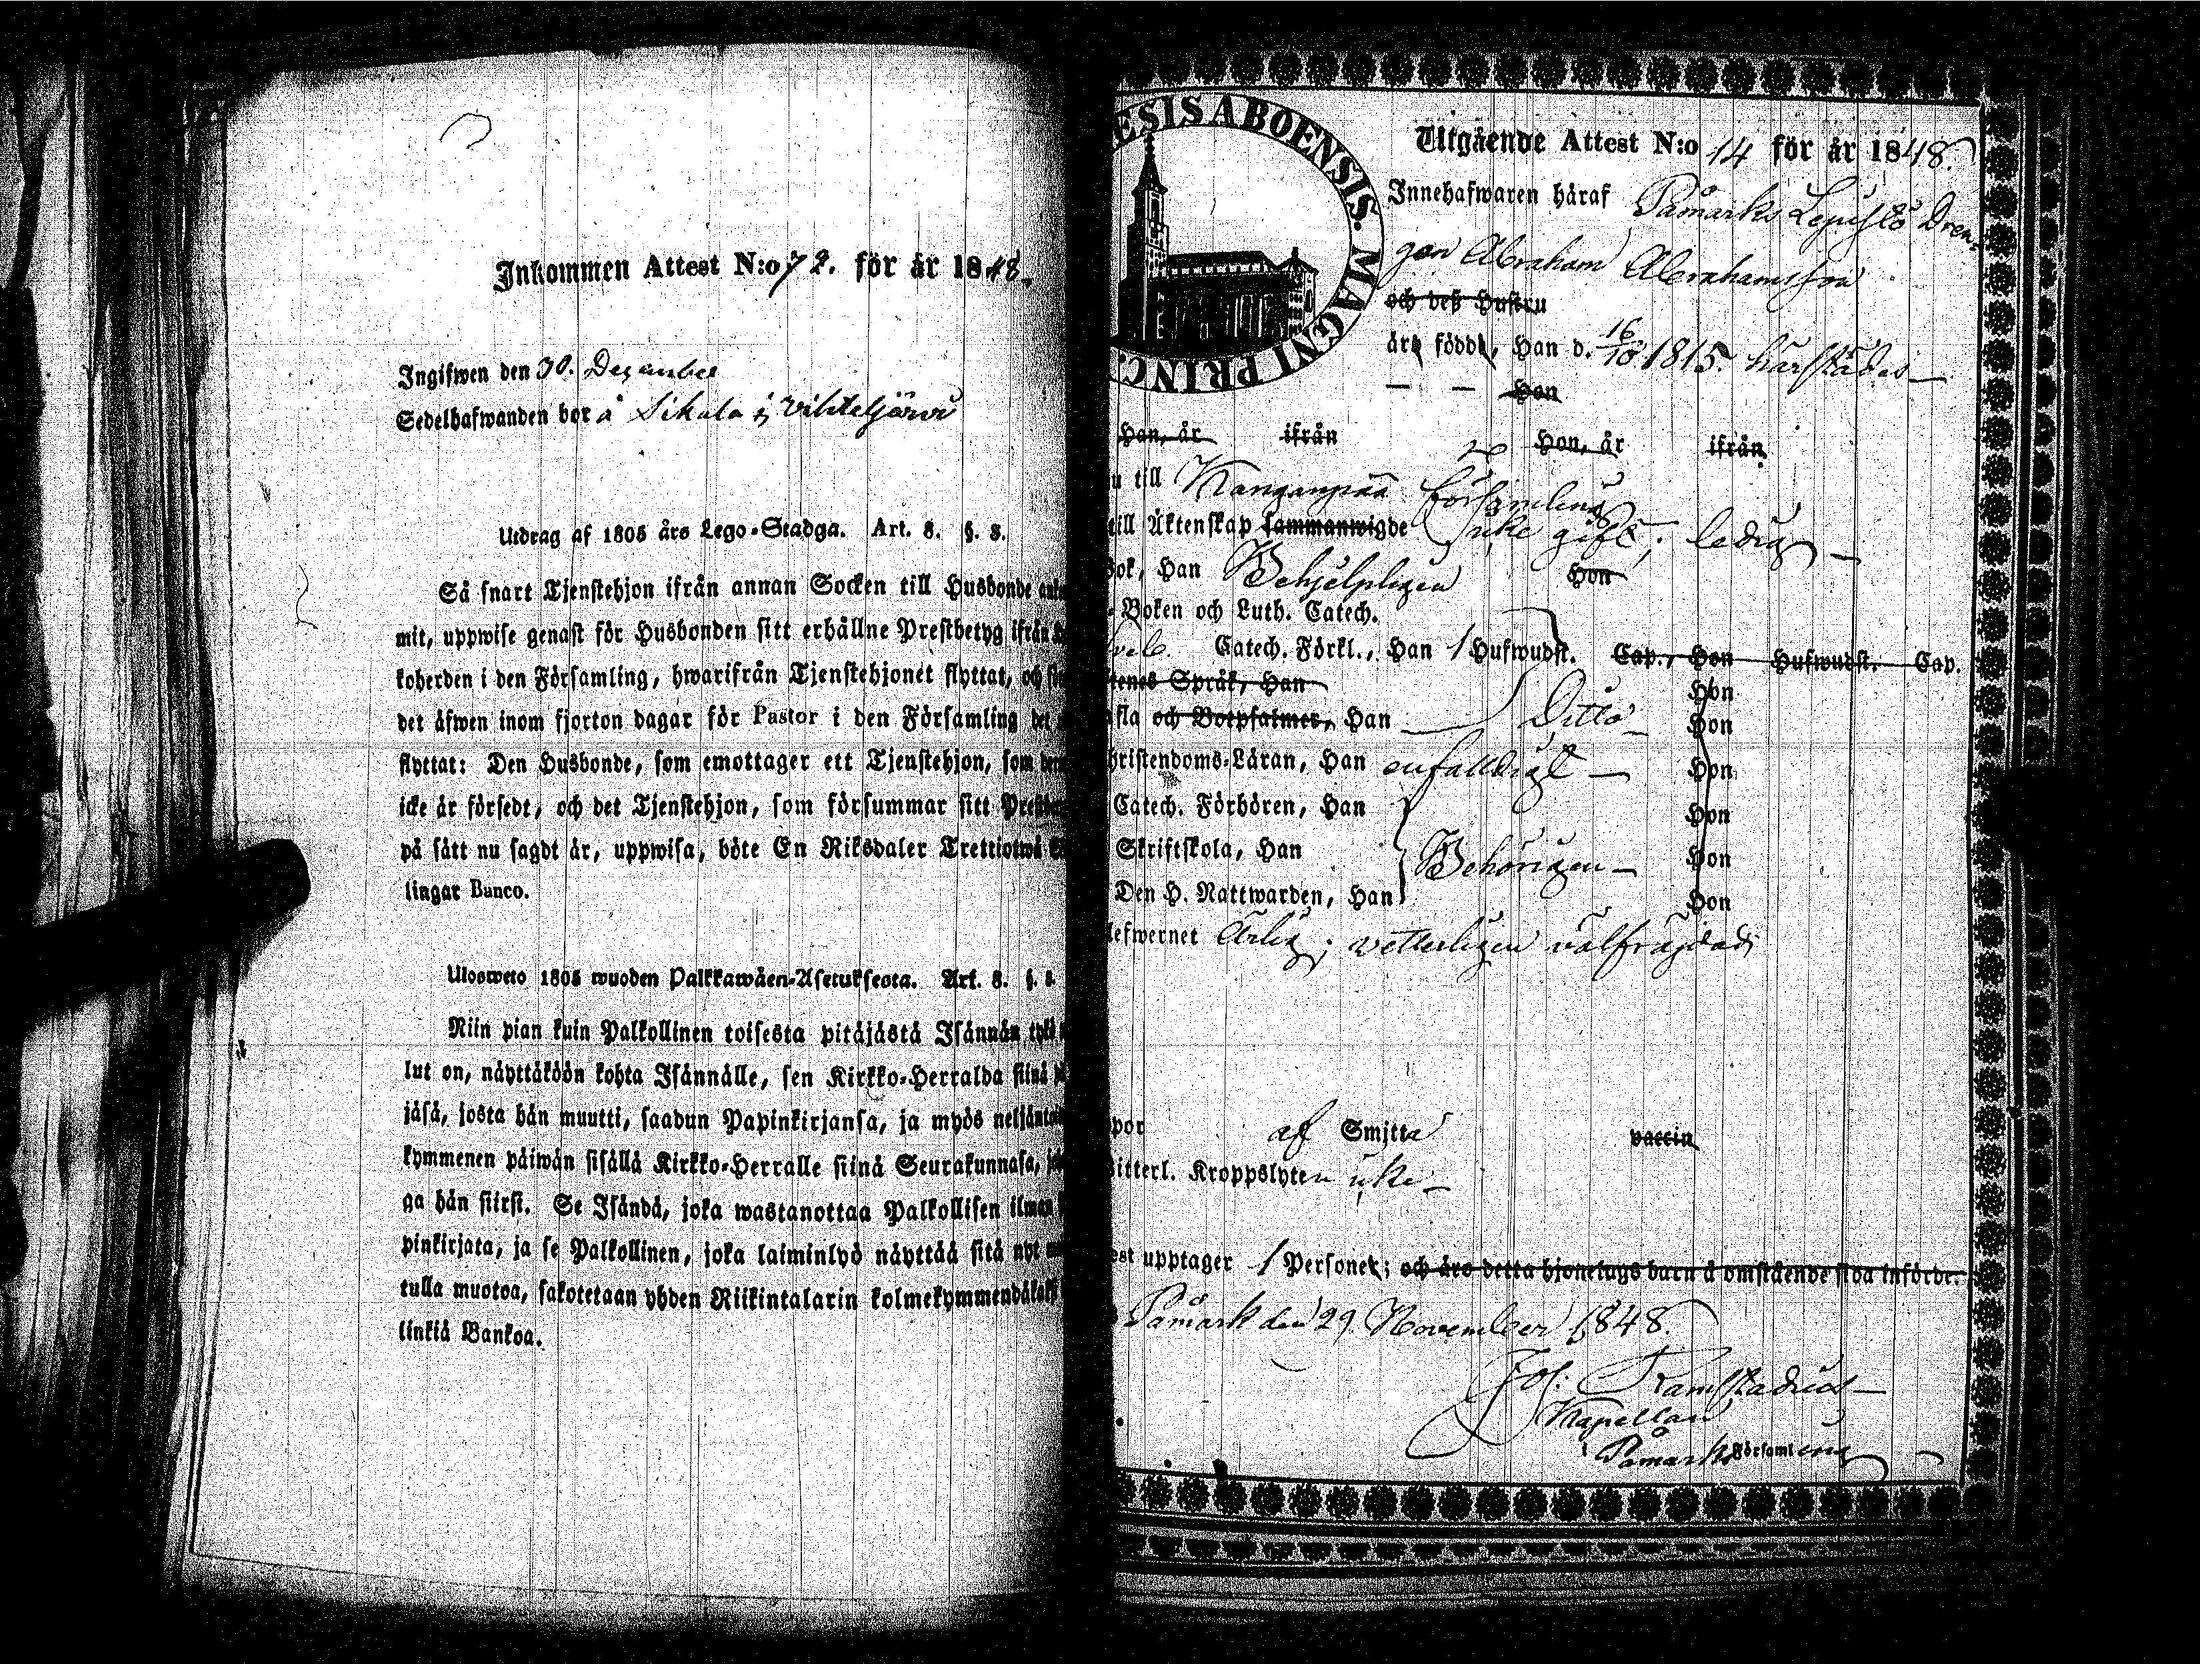 Inkommen Attest N:o 72. för år 1848.
Ingifwen den 30. December
Sedelhafwanden bor å Sikala i Vihteljärvi
Utdrag af 1805 års Lego-Stadga. Art. 8. §. 3.
Så snart Tjenstehjon ifrån annan Socken till Husbonde
mit, uppwise genast för Husbonden sitt erhållne Prestbetyg ifrån
koherden i den Församling, hwarifrån Tjenstehjonet flyttat, och
det äfwen inom fjorton dagar för Pastor i den Församling det
flyttat: Den Husbonde, som emottager ett Tjenstehjon, som
icke är försedt, och det Tjenstehjon, som försummar sitt
på sätt nu sagdt är, uppwisa, böte En Riksdaler Trettiotwå
lingar Banco.
Uloswеto 1805 wuoden Palkkawäen-Asetuksesta. Art. 8. §.
Niin pian kuin Palkollinen toisesta pitäjästä Isännän
lut on, näyttäköön kohta Isännälle, sen Kirkko-Herralda siinä
jäsä, josta hän muutti, saadun Papinkirjansa, ja myös
kymmenen päiwän sisällä Kirkko-Herralle siinä Seurakunnasa,
ga hän siirsi. Se Isändä, joka wastanottaa Palkollisen ilman
pinkirjata, ja se Palkollinen, joka laiminlyö näyttää sitä nyt
tulla muotoa, sakotetaan yhden Riikintalarin
linkiä Bankoa.
ESIS ABOENSIS. MAGNI PRINC.
Utgående Attest N:o 14 för år 1848.
Innehafwaren häraf Påmarks Lepistö Dren-
gen Abraham Abrahamsson
och deß Hustru
äre födde, Han d. 16/10 1815. härstädes
Hon
Han, år ifrån Hon, år ifrån
u till Kanganpää församling
till Äktenskap sammanwigde icke gift; ledig
bok, Han Behjelpligen Hon
Boken och Luth. Catech.
Catech. Förkl., Han 1 Hufwudst. Cap., Hon Hufwudst. Cap.
tenes Språk, Han Hon
fla och Botpsalmer, Han Ditto Hon
hristendoms-Läran, Han enfaldigt Hon
Catech. Förhören, Han Hon
Skriftskola, Han Behörigen Hon
Den H. Nattwarden, Han Hon
lefwernet Ärlig; vetterligen välfrägdad;
por af Smitta vaccin
itterl. Kroppslyten icke
est upptager 1 Personer; och äro detta hjonelags barn å omstående sida införde.
Påmark den 29. November 1848.
Jos: Ramstadius
Kapellan
i Påmarks Församling